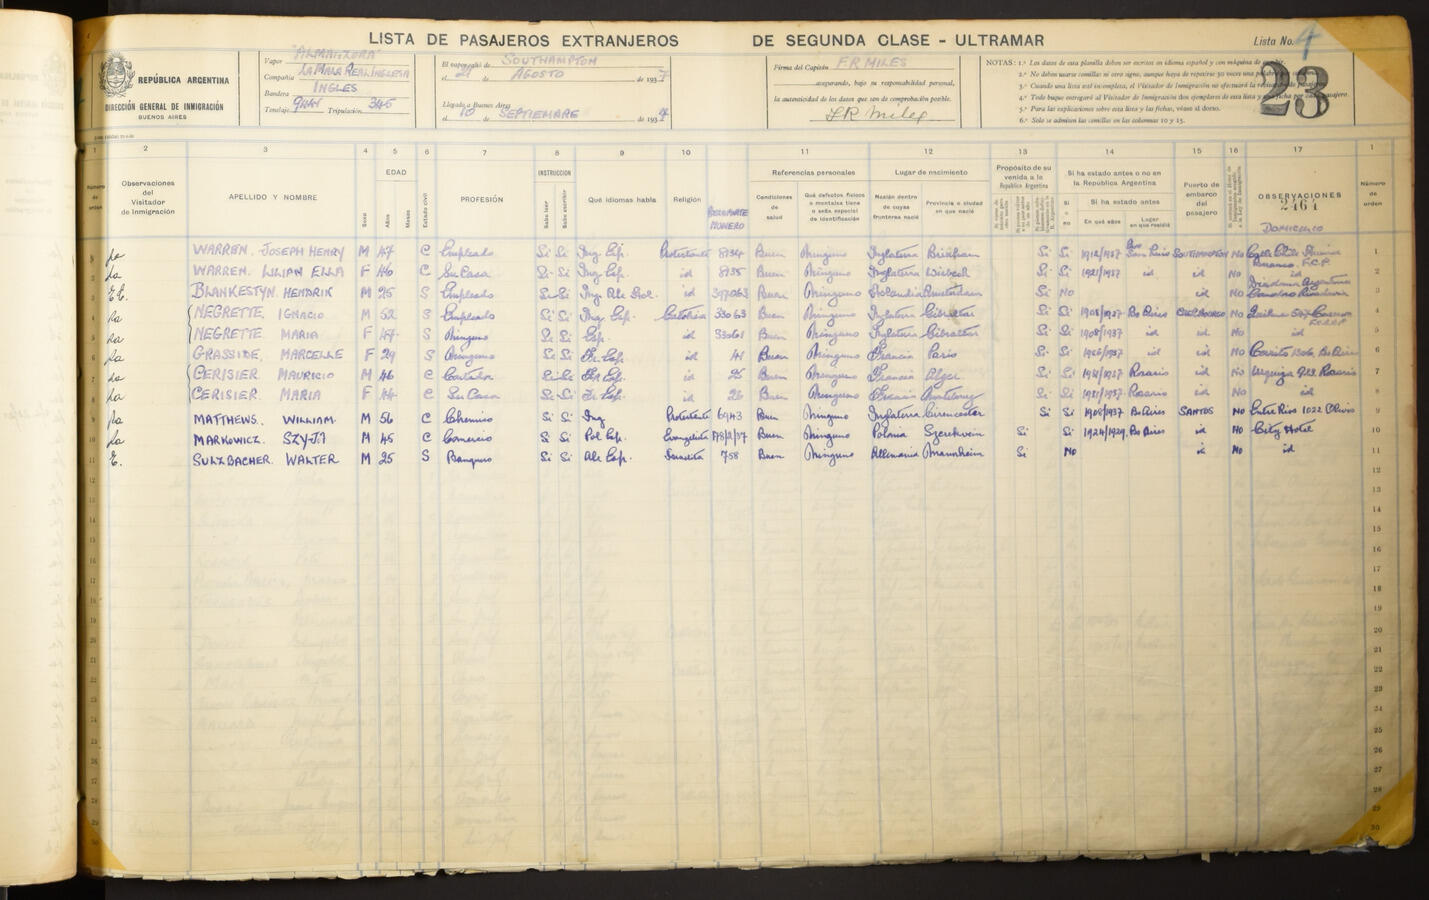 LISTA DE PASAJEROS EXTRANJEROS DE SEGUNDA CLASE - ULTRAMAR
Lista No. 4
REPÚBLICA ARGENTINA
DIRECCIÓN GENERAL DE INMIGRACIÓN
BUENOS AIRES
Vapor "ALMANZORA"
Compañía LA MALA REAL INGLESA
Bandera INGLES
Tonelaje Tripulación 345
El vapor salió de SOUTHAMPTON
el 21 de AGOSTO de 1937
Llegado a Buenos Aires
el 10 de SEPTIEMBRE de 1937
Firma del Capitán F.R. MILES
asegurando, bajo su responsabilidad personal,
la autenticidad de los datos que son de comprobación posible.
F R Miles
NOTAS: 1.ª Los datos de esta planilla deben ser escritos en idioma español y con máquina de
2.ª No deben usarse comillas ni otro signo, aunque haya de repetirse 30 veces una
3.ª Cuando una lista esté incompleta, el Visitador de Inmigración no efectuará la
4.ª Todo buque entregará al Visitador de Inmigración dos ejemplares de esta lista y una ficha por cada pasajero.
5.ª Para las explicaciones sobre esta lista y las fichas, véase al dorso.
6.ª Solo se admiten las comillas en las columnas 10 y 15.
23
1 2 3 4 5 6 7 8 9 10 11 12 13 14 15 16 17 1
Número de orden
Observaciones del Visitador de Inmigración
APELLIDO Y NOMBRE
Sexo
EDAD
Años
Meses
Estado civil
PROFESIÓN
INSTRUCCION
Sabe leer
Sabe escribir
Qué idiomas habla
Religión
PASAPORTE NUMERO
Referencias personales
Condiciones de salud
Qué defectos físicos o mentales tiene o seña especial de identificación
Lugar de nacimiento
Nación dentro de cuyas fronteras nació
Provincia o ciudad en que nació
Propósito de su venida a la República Argentina
Si ha estado antes o no en la República Argentina
Si o no
Si ha estado antes
En qué años
Lugar en que residió
Puerto de embarco del pasajero
OBSERVACIONES
2464
DOMICILIO
Número de orden
WARREN. JOSEPH HENRY M 47 C Empleado Si Si Ing Esp. Protestante 8734 Buen Ninguno Inglaterra Si Si 1912/1937 San Luis SOUTHAMPTON No 1
WARREN. LILIAN ELLA F 46 C Su Casa Si Si Ing Esp. id 8735 Buen Ninguno Inglaterra Wisbech Si Si 1921/1937 id id No id 2
BLANKESTYN. HENDRIK M 25 S Empleado Si Si Ing Ale Hol. id 397063 Buen Ninguno Holanda Amsterdam Si No id No 3
NEGRETTE IGNACIO M 52 S Empleado Si Si Ing Esp. Católica 33063 Buen Ninguno Inglaterra Gibraltar Si Si 1908/1937 Bs Aires CHERBOURGO No 4
NEGRETTE MARIA F 47 S Ninguno Si Si Esp. id 33061 Buen Ninguno Inglaterra Gibraltar Si Si 1908/1937 id id No id 5
GRASSIDE. MARCELLE F 29 S Ninguno Si Si Fr. Esp. id 41 Buen Ninguno Francia Paris Si Si 1926/1937 id id No Bs Aires 6
CERISIER MAURICIO M 46 C Contador Si Si Fr Esp. id 25 Buen Ninguno Francia Alger Si Si Rosario id No Urquiza 923 Rosario 7
CERISIER. MARIA F 44 C Su Casa Si Si Fr Esp. id 26 Buen Ninguno Francia Si Si Rosario id No id 8
MATTHEWS. WILLIAM. M 56 C Chemico Si Si Ing Protestante 6943 Buen Ninguno Inglaterra Cirencester Si Si 1908/1937 Bs Aires SANTOS No Entre Rios 1022 Olivos 9
MARKOWICZ. M 45 C Comercio Si Si Pol Esp. Evangelista Buen Ninguno Polonia Si Si 1924/1929. Bs Aires id No City Hotel 10
SULZBACHER. WALTER M 25 S Banquero Si Si Ale Esp. Israelita 758 Buen Ninguno Allemania Mannheim Si No id No id 11
12
13
14
15
16
17
18
19
20
21
22
23
24
25
26
27
28
29
30